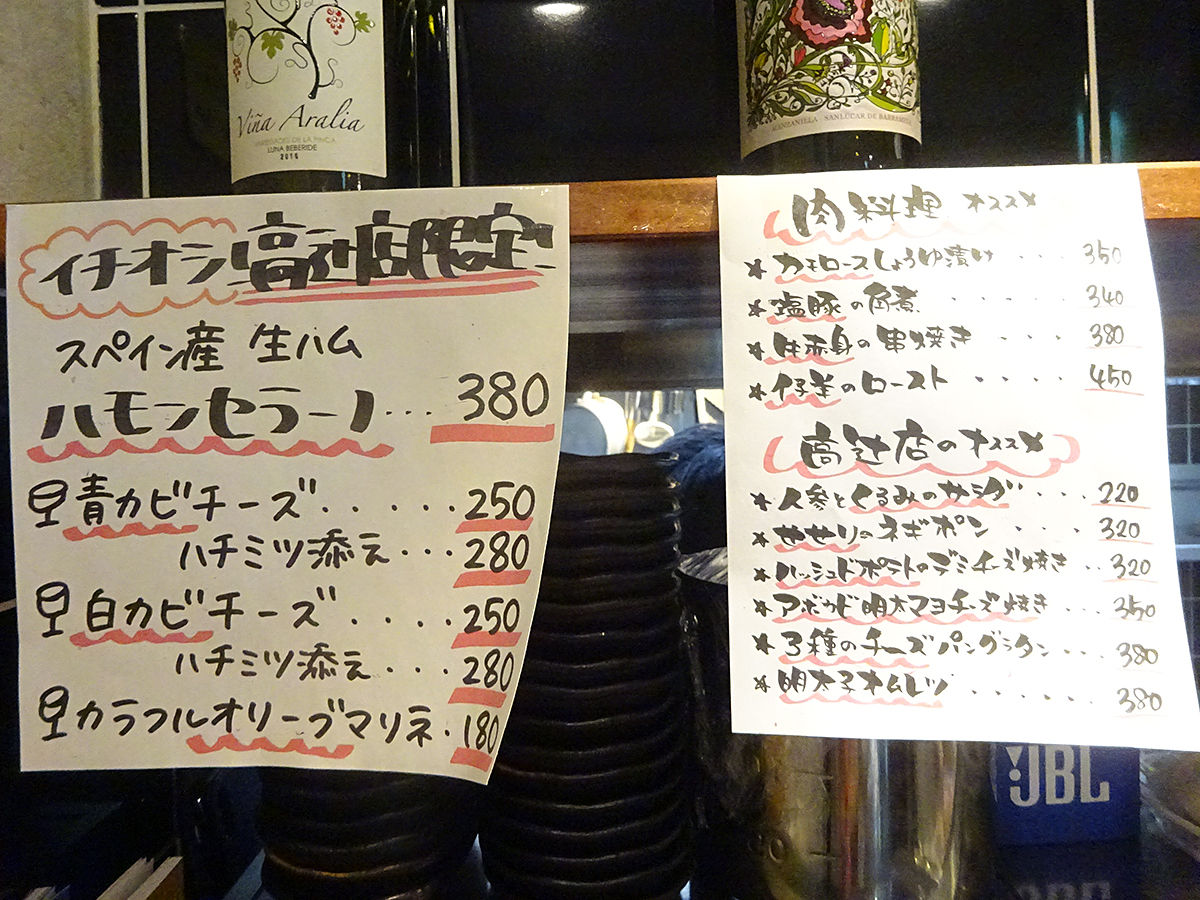 Viña Aralia
VARIEDADES DE LA FINCA
LUNA BEBERIDE
2015
MANZANILLA - SANLÚCAR DE BARRAMEDA
イチオシ! 高辻店限定
スペイン産 生ハム
ハモンセラーノ... 380
青カビチーズ...... 250
ハチミツ添え... 280
白カビチーズ.... 250
ハチミツ添え... 280
カラフルオリーブマリネ. 180
肉料理 オススメ
★カモロースしょうゆ漬け... 350
★塩豚の角煮..... 340
★牛赤身の串焼き... 380
★仔羊のロースト.... 450
高辻店のオススメ
★人参とくるみのサラダ... 220
★せせりのネギポン... 320
★ハッシュドポテトのデミチーズ焼き.. 320
★アボカド明太マヨチーズ焼き... 350
★3種のチーズパングラタン... 380
★明太子オムレツ...... 380
JBL